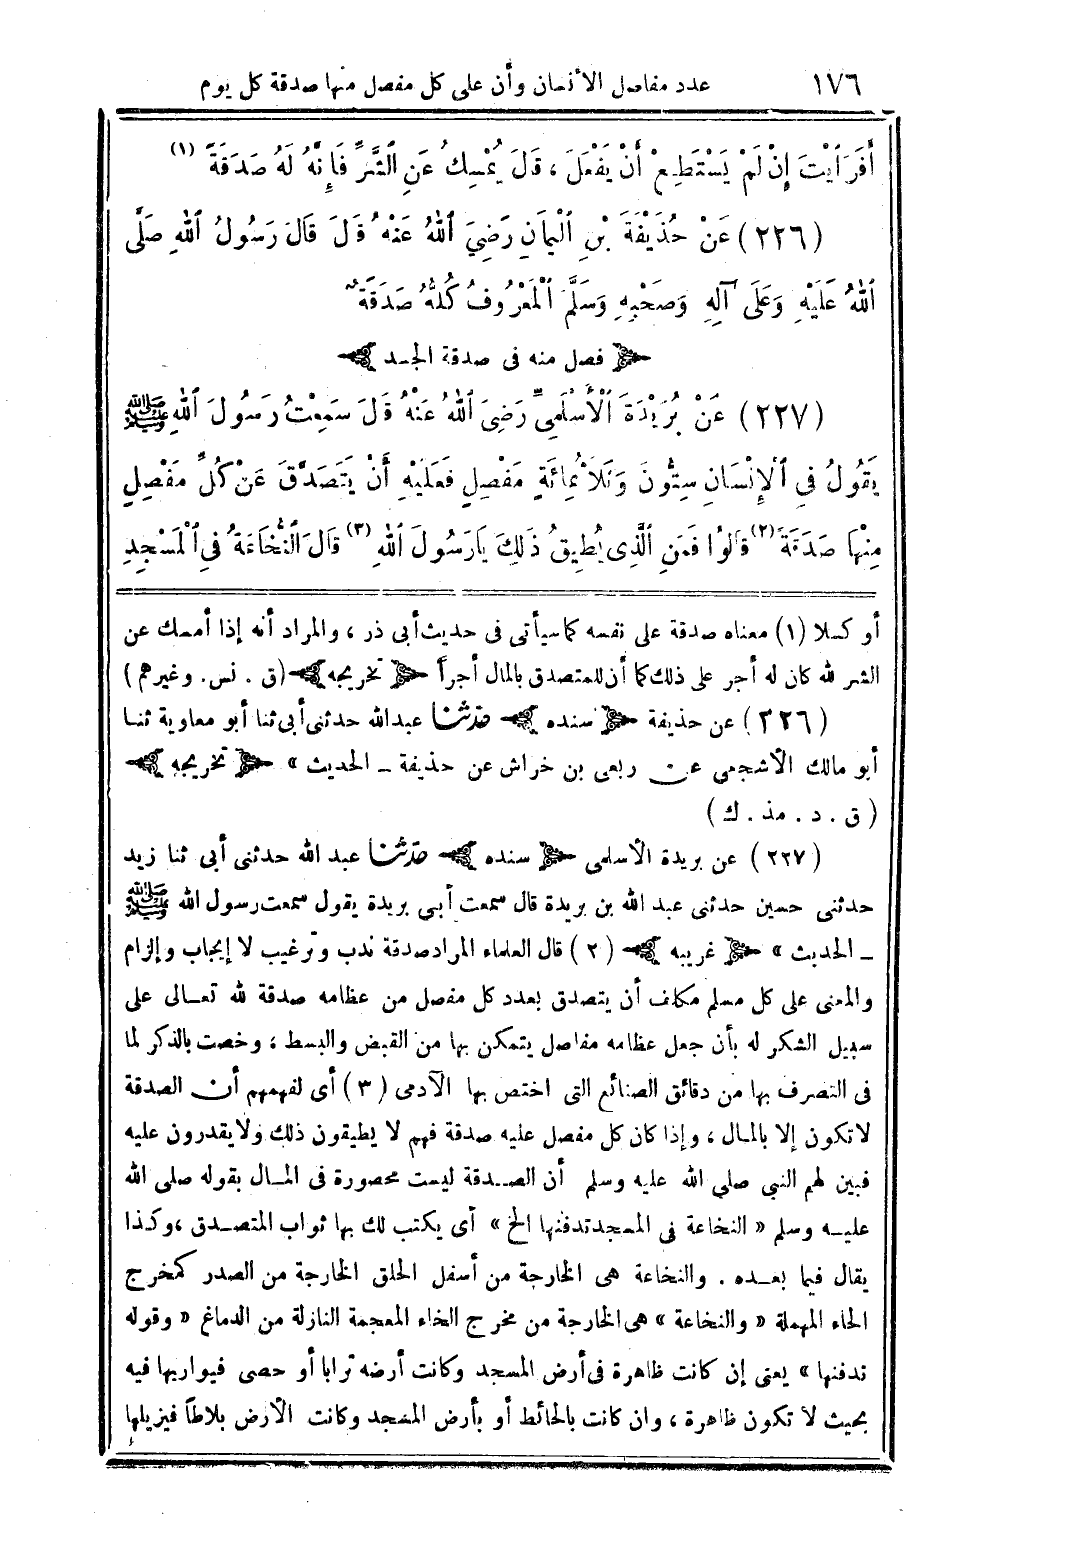 ١٧٦ عدد مفاصل الأنسان وأن على كل مفصل منها صدقة كل يوم
أَفَرَأَيْتَ إِنْ لَمْ يَسْتَطِعْ أَنْ يَفْعَلَ ، قَالَ يُمْسِكُ عَنِ الشَّرِّ فَإِنَّهُ لَهُ صَدَقَةٌ (١)
(٢٢٦) عَنْ حُذَيْفَةَ بْنِ الْيَمَانِ رَضِيَ اللهُ عَنْهُ قَالَ قَالَ رَسُولُ اللهِ صَلَّى
اللهُ عَلَيْهِ وَعَلَى آلِهِ وَصَحْبِهِ وَسَلَّمَ الْمَعْرُوفُ كُلُّهُ صَدَقَةٌ
فصل منه فى صدقة الجسد
(٢٢٧) عَنْ بُرَيْدَةَ الْأَسْلَمِيِّ رَضِيَ اللهُ عَنْهُ قَالَ سَمِعْتُ رَسُولَ اللهِ ﷺ
يَقُولُ فِي الْإِنْسَانِ سِتُّونَ وَثَلَاثُمِائَةِ مَفْصِلٍ فَعَلَيْهِ أَنْ يَتَصَدَّقَ عَنْ كُلِّ مَفْصِلٍ
مِنْهَا صَدَقَةً (٢) قَالُوا فَمَنِ الَّذِى يُطِيقُ ذَلِكَ يَارَسُولَ اللهِ (٣) قَالَ النُّخَاعَةُ فِي الْمَسْجِدِ
أو كسلا (١) معناه صدقة على نفسه كما سيأتى فى حديث أبى ذر ، والمراد أنه إذا أمسك عن
الشر لله كان له أجر على ذلك كما أن للمتصدق بالمال أجراً تخريجه (ق . نس . وغيرهم)
(٢٢٦) عن حذيفة سنده حدثنا عبدالله حدثنى أبى ثنا أبو معاوية ثنا
أبو مالك الأشجعى عن ربعى بن خراش عن حذيفة ــ الحديث » تخريجه
(ق . د . مذ . ك)
(٢٢٧) عن بريدة الأسلمى سنده حدثنا عبد الله حدثنى أبى ثنا زيد
حدثنى حسين حدثنى عبد الله بن بريدة قال سمعت أبى بريدة يقول سمعت رسول الله ﷺ
ــ الحديث » غريبه (٢) قال العلماء المراد صدقة ندب وترغيب لا إيجاب وإلزام
والمعنى على كل مسلم مكلف أن يتصدق بعدد كل مفصل من عظامه صدقة لله تعالى على
سبيل الشكر له بأن جعل عظامه مفاصل يتمكن بها من القبض والبسط ، وخصت بالذكر لما
فى التصرف بها من دقائق الصنائع التى اختص بها الآدمى (٣) أى لفهمهم أن الصدقة
لا تكون إلا بالمال ، وإذا كان كل مفصل عليه صدقة فهم لا يطيقون ذلك ولا يقدرون عليه
فبين لهم النبي صلى الله عليه وسلم أن الصدقة ليست محصورة فى المال بقوله صلى الله
عليه وسلم « النخاعة فى المسجد تدفنها الخ » أى يكتب لك بها ثواب المتصدق ، وكذا
يقال فيما بعده . والنخاعة هى الخارجة من أسفل الحلق الخارجة من الصدر كمخرج
الحاء المهملة « والنخاعة » هى الخارجة من مخرج الخاء المعجمة النازلة من الدماغ « وقوله
تدفنها » يعنى إن كانت ظاهرة فى أرض المسجد وكانت أرضه ترابا أو حصى فيواريها فيه
بحيث لا تكون ظاهرة ، وان كانت بالحائط أو بأرض المسجد وكانت الأرض بلاطاً فيزيلها